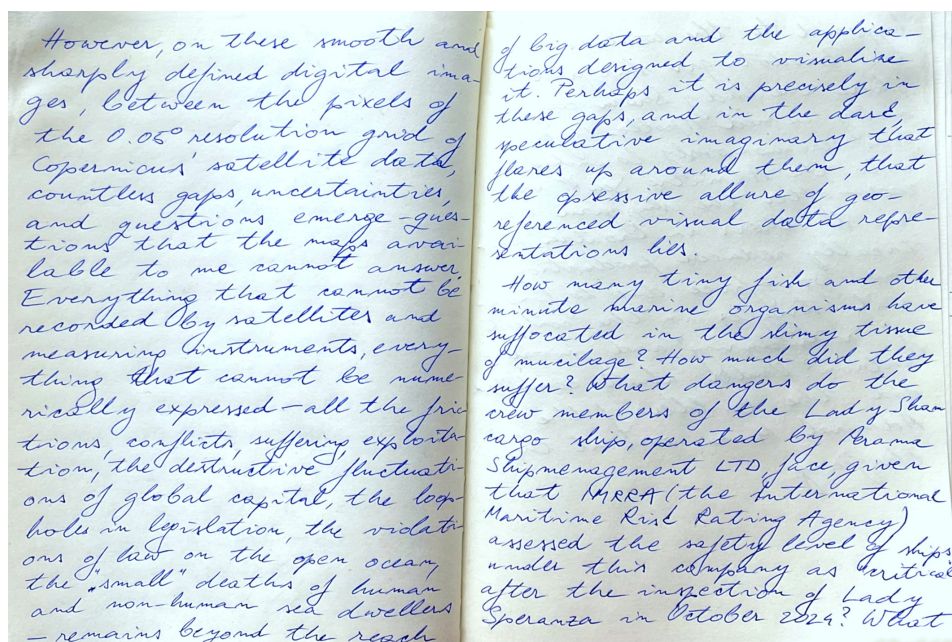 However, on these smooth and
sharply defined digital ima-
ges, between the pixels of
the 0.05° resolution grid of
Copernicus' satellite data,
countless gaps, uncertainties,
and questions emerge – ques-
tions that the maps avai-
lable to me cannot answer.
Everything that cannot be
recorded by satellites and
measuring instruments, every-
thing that cannot be nume-
rically expressed – all the fric-
tions, conflicts, suffering, exploita-
tion, the destructive fluctuati-
ons of global capital, the loop-
holes in legislation, the violati-
ons of law on the open ocean,
the "small" deaths of human
and non-human sea dwellers
– remains beyond the reach
of big data and the applica-
tions designed to visualise
it. Perhaps it is precisely in
these gaps, and in the dark,
speculative imaginary that
flares up around them, that
the opsessive allure of geo-
referenced visual data repre-
sentations lies.
How many tiny fish and other
minute marine organisms have
suffocated in the slimy tissue
of mucilage? How much did they
suffer? What dangers do the
crew members of the Lady Sham
cargo ship, operated by Perama
Shipmenagement LTD, face, given
that IMRRA (the International
Maritime Risk Rating Agency)
assessed the safety level of ships
under this company as critical
after the inspection of Lady
Speranza in October 2024? What